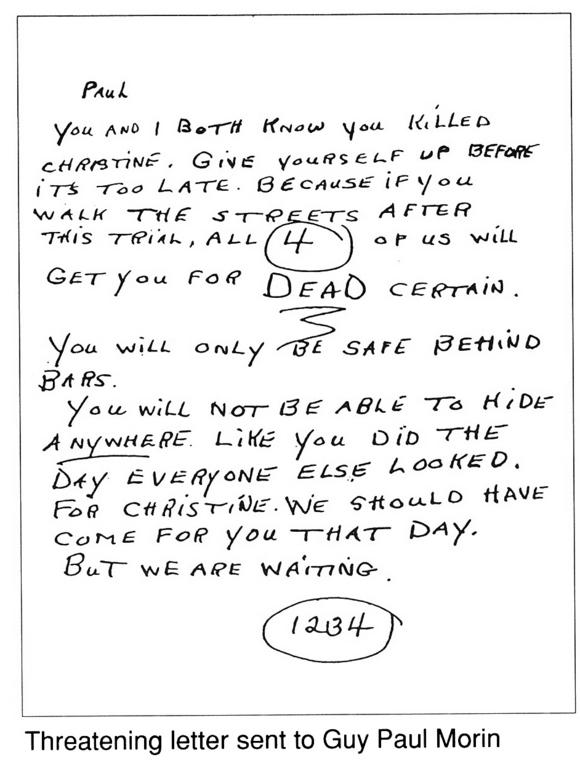 Paul
You AND I BOTH KNOW you KiLLED
CHRISTINE. GIVE YOURSELF UP BEFORE
iT'S TOO LATE. BECAUSE iF you
WALK THE STREETS AFTER
THIS TRIAL, ALL 4 OF US WiLL
GET you FOR DEAD CERTAIN.
You WiLL ONLY BE SAFE BEHIND
BARS.
You WiLL NOT BE ABLE TO HiDE
ANYWHERE. LIKE You DID THE
DAY EVERYONE ELSE LOOKED.
FOR CHRISTINE. WE SHOULD HAVE
COME FOR you THAT DAY.
BuT WE ARE WAITING.
1234
Threatening letter sent to Guy Paul Morin